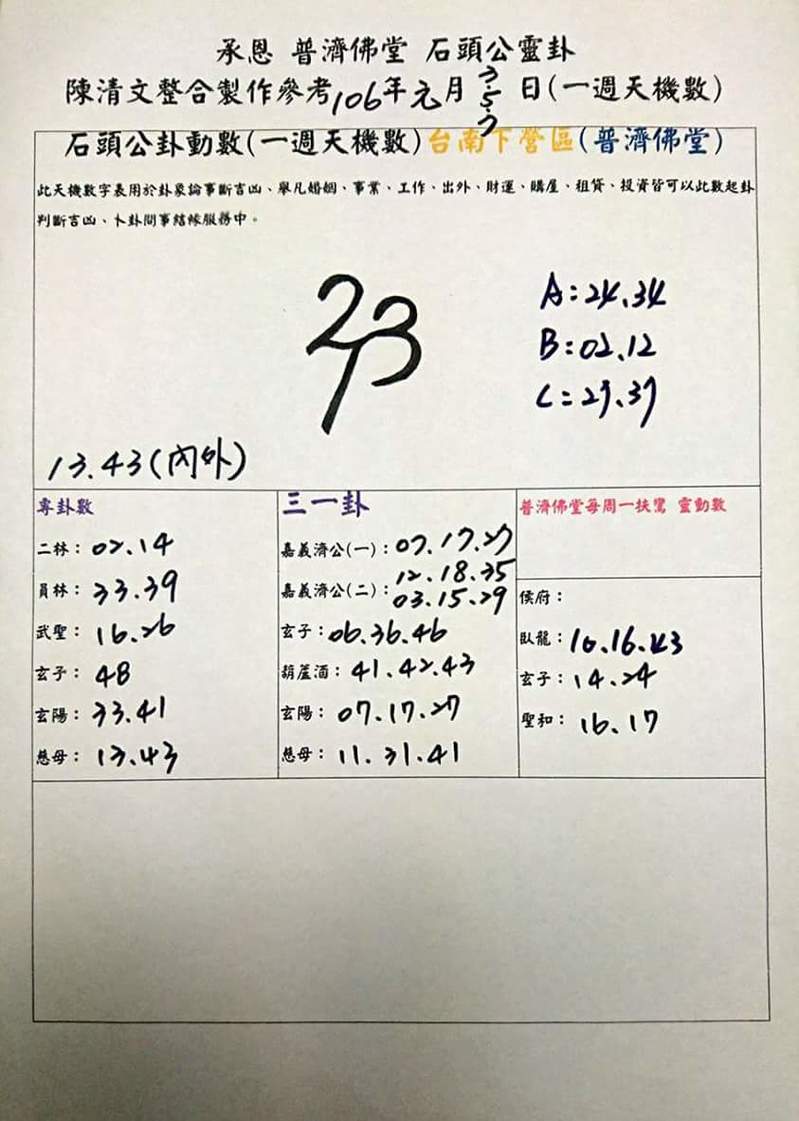 承恩 普濟佛堂 石頭公靈卦
陳清文整合製作參考106年元月3.5.7日(一週天機數)
石頭公卦動數(一週天機數)台南下營區(普濟佛堂)
此天機數字表用於卦象論事斷吉凶、舉凡婚姻、事業、工作、出外、財運、購屋、租賃、投資皆可以此數起卦
判斷吉凶、卜卦問事結緣服務中。
A:24.34
B:02.12
C:27.37
13.43(內外)
專卦數
二林:02.14
員林:33.39
武聖:16.26
玄子:48
玄陽:33.41
慈母:13.43
三一卦
嘉義濟公(一):07.17.27
12.18.35
嘉義濟公(二):03.15.29
玄子:06.36.46
葫蘆酒:41.42.43
玄陽:07.17.27
慈母:11.31.41
普濟佛堂每周一扶鸞 靈動數
候府:
臥龍:10.16.43
玄子:14.24
聖和:16.17